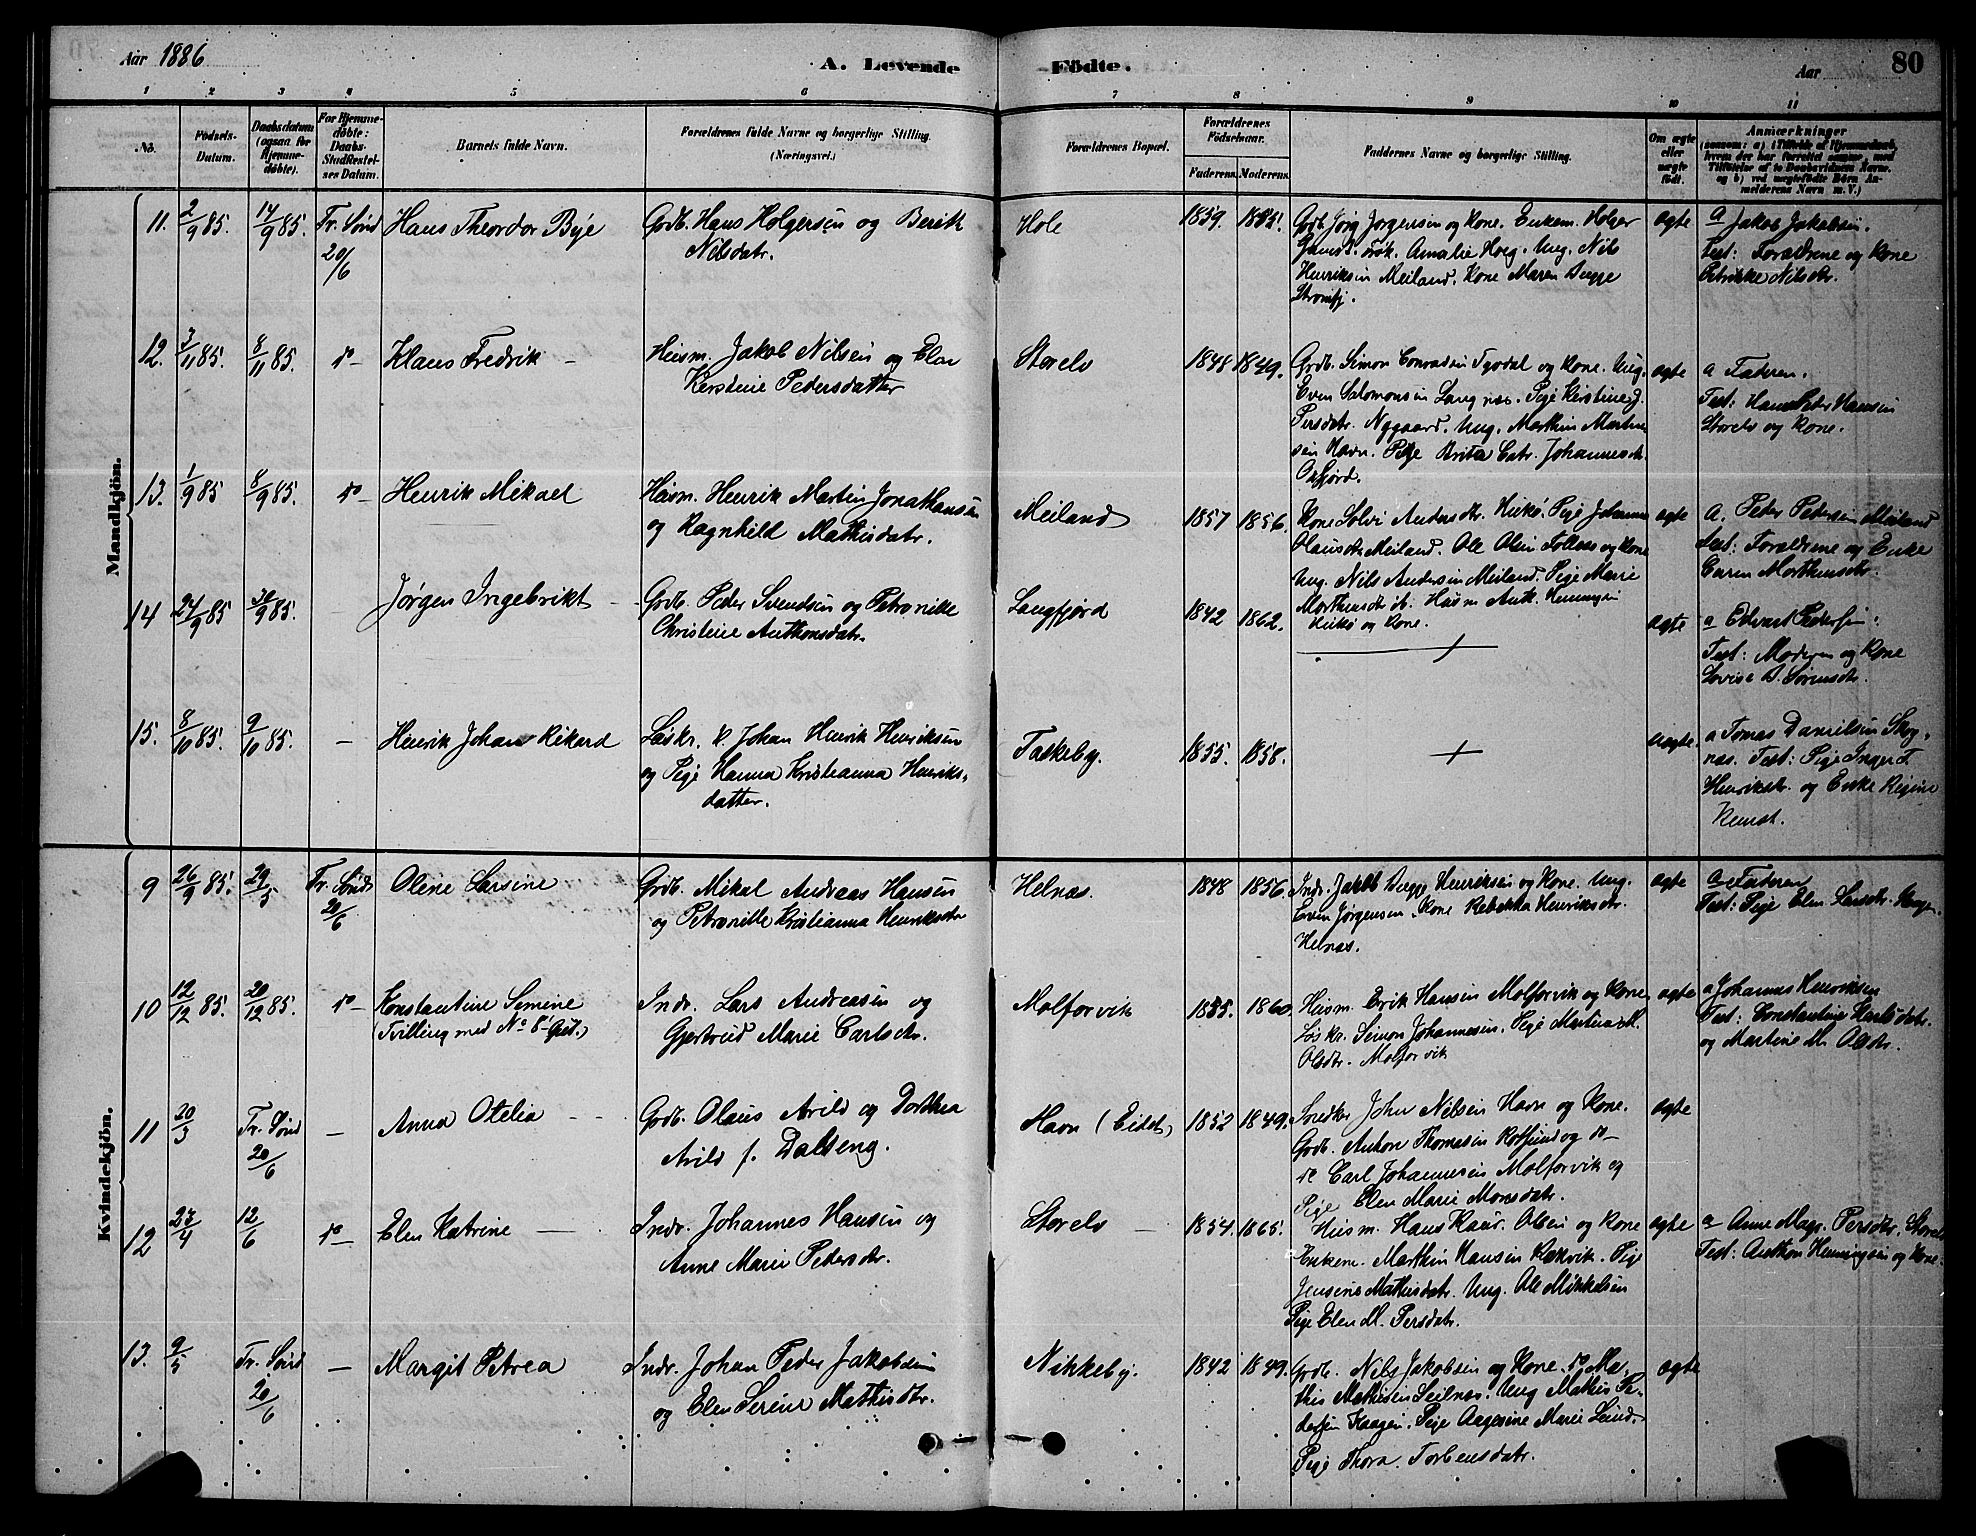 Aar 1886
A. Levende
Födte.
Aar
80
1 2 3 4 5 6 7 8 9 10 11
No.
Födsels-
Datum.
Daabsdatum
(ogsaa for
Hjemme-
döbte).
For Hjemme-
döbte:
Daabs-
Stadfæstel-
ses Datum.
Barnets fulde Navn.
Forældrenes fulde Navne og borgerlige Stilling.
(Næringsvei.)
Forældrenes Bopæl.
Forældrenes
Födselsaar.
Faderens. Moderens.
Faddernes Navne og borgerlige Stilling.
Om ægte
eller
uægte
födt.
Anmærkninger
Mandkjön.
11. 2/9 85. 14/9 85. Fr. Sönd
20/6
Hans Theordor Bye
Gdb. Hans Holgersen og Berith
Nilsdatr.
Hole
1859. 1885.
Gdb. Jörg Jörgensen og Kone. Enkem. Holger
Amalie Hoeg. Ung. Nils
Henriksen Meiland. Kone Maren Bugge
Strömfj.
ægte
a Jakob Jakobsen.
Test: Forældrene og Kone
Petrikke Nilsdtr.
12. 3/11 85. 8/11 85. do
Klaus Fredrik
Huusm. Jakob Nilsen og Elen
Kerstine Pedersdatter
Storelv
1848 1849.
Gdb. Simon Conradsen og Kone. Ung.
Even Salomonsen Langnæs. Pige Kerstine J.
Persdatr. Nygaard. Ung. Marthin Martin-
sen Havn. Pige Brita Catr. Johannesdr.
Oxfjord.
ægte
a Faderen.
Test: Hans Peter Hansen
Storelv og Kone.
13. 1/9 85 8/9 85. do
Henrik Mikael
Huusm. Henrik Martin Jonathansen
og Ragnhild Mathisdatr.
Meiland
1857 1856.
Kone Solvi Andersdtr. Kukö. Pige Johanna
Olausdtr Meiland. Ole Olsen Follesö og Kone
Ung. Nils Andersen Meiland. Pige Marie
Morthensdtr ib. Huusm Ant. Henningsen
Kukö og Kone.
ægte
a. Peder Pedersen Meiland
Test: Forældrene og Enke
Caren Morthensdtr.
14 24/9 85 /9 85.
Jørgen Ingebrikt
Gdb. Peder Svendsen og Petronille
Christine Anthonsdatr.
Langfjord
1842 1862.
ægte
a Edvart Pedersen.
Test: Moderen og Kone
Lovise B. Sörensdtr.
15. 8/10 85. 9/10 85.
Henrik Johan Rikard
Löskr. Johan Henrik Henriksen
og Pige Hanna Kristianna Henriks-
datter.
Taskeby.
1855. 1858.
uægte.
a Tomas Danielsen Skog-
næs. Test: Pige Inger F.
Henriksdtr. og Enke Regine
Kvindekjön.
9 26/9 85. 29/5 Fr. Sönd
20/6
Oline Larsine
Gdb. Mikal Andreas Hansen
og Petronille Kristianna Henriksdtr
Helnæs.
1848 1856.
Indr. Jakob Bugge Henriksen og Kone. Ung.
Even Jørgensen. Kone Rebekka Henriksdtr.
Helnæs.
ægte
a Faderen
Test: Pige Elen Larsdtr.
10 12/12 85. 20/12 85. do
Konstantine Semine
(Tvilling med No 8 Gut.)
Indr. Lars Andreasen og
Gjertrud Marie Carlsdtr.
Molforvik
1835. 1860.
Huusm. Erik Hansen Molforvik og Kone
Löskr. Simon Johannesen. Pige Martina M.
Olsdtr. Molforvik
ægte
a Johannes Henriksen
Test: Constantine Karlsdatr.
og Martine M. Olsdtr.
11 20/3 Fr. Sönd
20/6
Anna Otelia
Gdb. Olaus Arild og Dorthea
Arild f. Dalseng.
Havn (Eidet)
1852 1849.
Snedker John Nilsen Havn og Kone.
Gdb. Anton Thomasen Rotsund og do
do Carl Johannesen Molforvik og
Pige Elen Marie Monsdatr.
ægte
12 23/4 12/6 do
Elen Katrine
Indr. Johannes Hansen og
Anne Marie Pedersdtr.
Storelv
1854. 1865.
Huusm. Hans Laur. Olsen og Kone
Enkem. Marthin Hansen Rakvik. Pige
Jensine Mathisdatr. Ung. Ole Mikkelsen
Pige Elen M. Persdatr.
ægte
a Anne Magr. Persdtr. Storelv
Test: Anthon Henningsen og Kone.
13. 9/5 Fr. Sönd
20/6
Margit Petrea
Indr. Johan Peder Jakobsen
og Elen Serine Mathisdtr.
Nikkeby.
1842 1849.
Gdb. Nils Jakobsen og Kone. do Ma-
this Mathisen Seilnæs. Ung Mathis Pe-
dersen Kaagen. Pige Aagesine Marie Lund.
Pige Thora Torbensdatr.
ægte